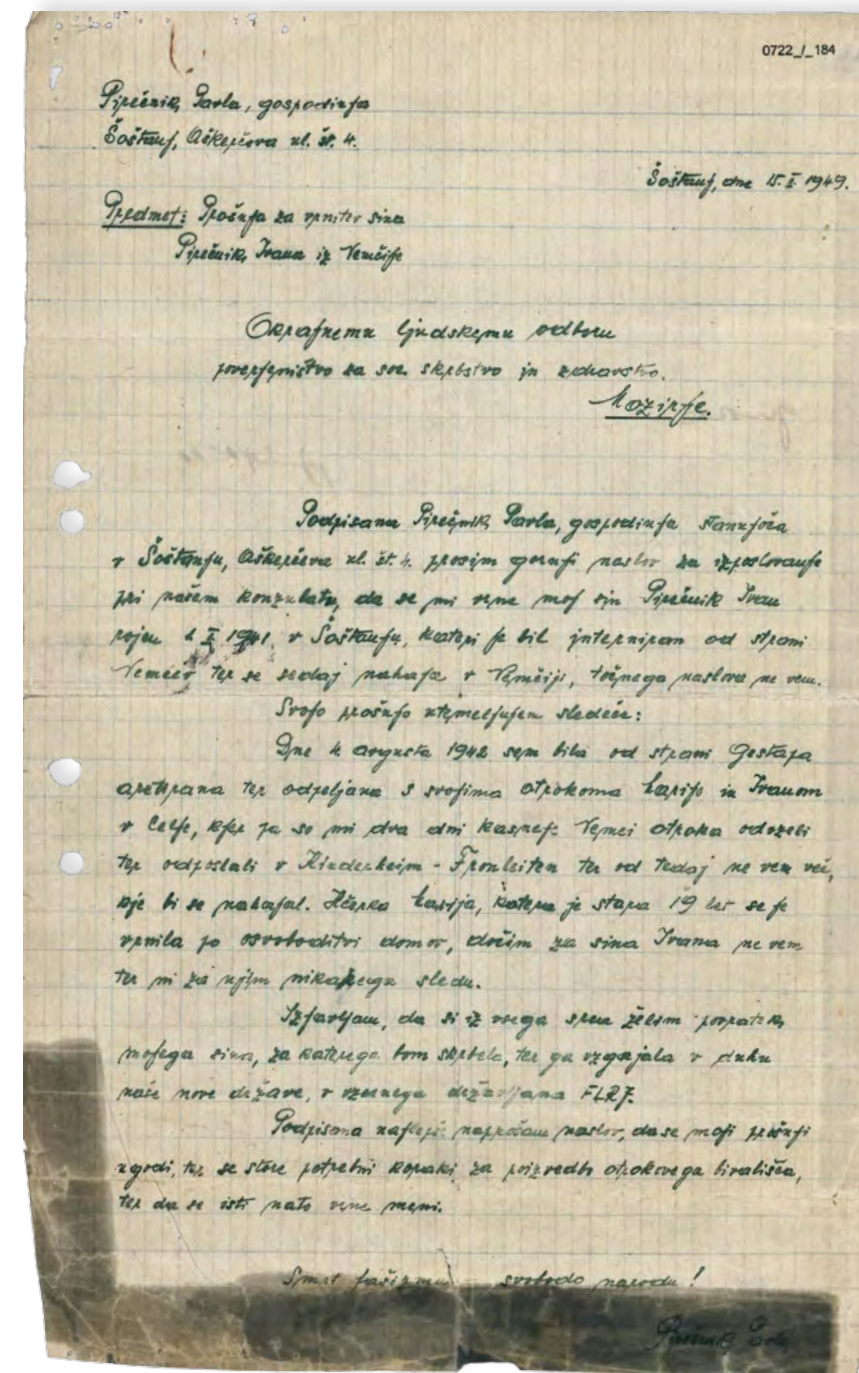 0722_/_184
Pirečnik Pavla, gospodinja
Šoštanj, Aškerčeva ul. št. 4.
Šoštanj, dne 15. I. 1949.
Predmet: Prošnja za vrnitev sina
Pirečnik Ivana iz Nemčije
Okrajnemu ljudskemu odboru
poverjeništvo za soc. skrbstvo in zdravstvo.
Mozirje.
Podpisana Pirečnik Pavla, gospodinja stanujoča
v Šoštanju, Aškerčeva ul. št. 4. prosim gornji naslov za izposlovanje
pri našem konzulatu, da se mi vrne moj sin Pirečnik Ivan
rojen I 1941. v Šoštanju, kateri je bil interniram od strani
Nemcev ter se sedaj nahaja v Nemčiji, točnega naslova ne vem.
Svojo prošnjo utemeljujem sledeče:
Dne 4 avgusta 1942 sem bila od strani Gestapa
aretirana ter odpeljana s svojima otrokoma in Ivanom
v Celje, kjer pa so mi dva dni kasneje Nemci otroka odvzeli
ter odposlali v Kinderheim - Fronleiten ter od tedaj ne vem več,
kje bi se nahajal. Hčerka katera je stara 19 let se je
vrnila po osvoboditvi domov, dočim za sina Ivana ne vem
ter ni za njim nikakega sledu.
Izjavljam, da si iz vsega srca želim povratek
mojega sina, za katerega bom skrbela, ter ga vzgajala v duhu
naše nove države, v vzornega državljana FLRJ.
Podpisana najlepše naprošam naslov, da se moji prošnji
ugodi, ter se store potrebni koraki za poizvedbo otrokovega bivališča,
ter da se isti nato vrne meni.
Smrt fašizmu - svobodo narodu!
Pirečnik Pavla